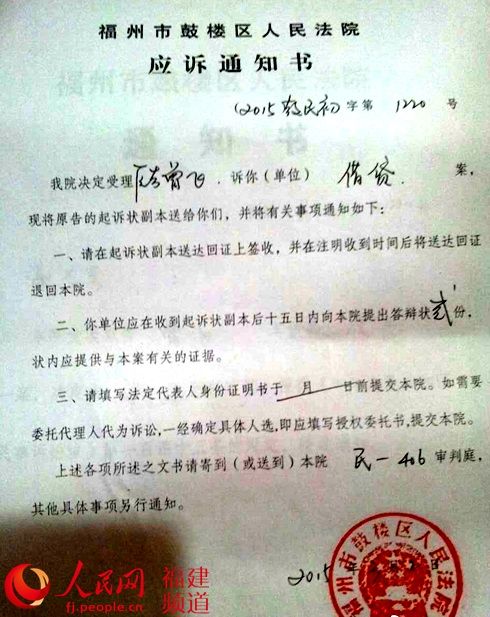 福州市鼓楼区人民法院
应诉通知书
(2015鼓民初字第 1220 号
我院决定受理 曾飞 诉你(单位) 借贷 案，
现将原告的起诉状副本送给你们，并将有关事项通知如下：
一、请在起诉状副本送达回证上签收，并在注明收到时间后将送达回证
退回本院。
二、你单位应在收到起诉状副本后十五日内向本院提出答辩状贰份，
状内应提供与本案有关的证据。
三、请填写法定代表人身份证明书于 月 日前提交本院。如需要
委托代理人代为诉讼，一经确定具体人选，即应填写授权委托书，提交本院。
上述各项所述之文书请寄到（或送到）本院 民一 406 审判庭，
其他具体事项另行通知。
2015 年
福州市鼓楼区人民法院
人民网 福建频道
fj.people.cn